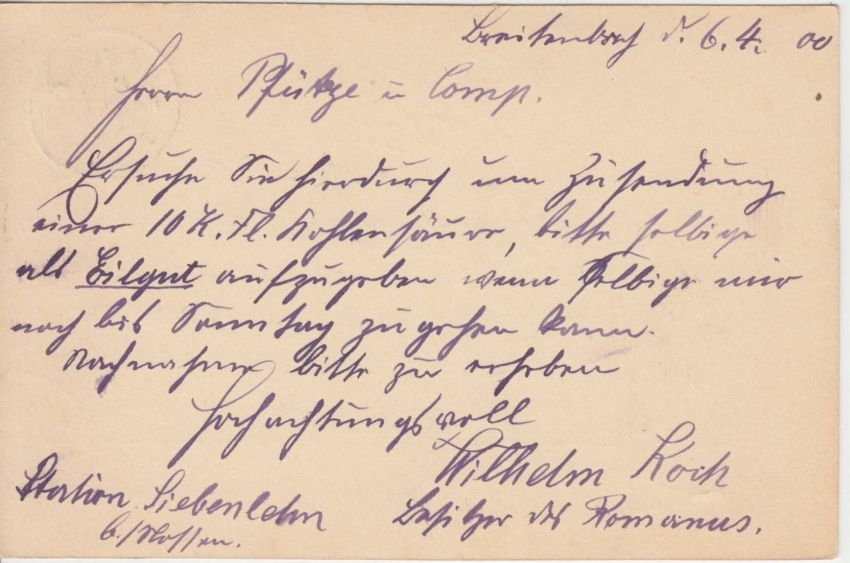 Breitenbach d. 6. 4. 00
Herrn Pfütze u Comp.
Ersuche Sie hierdurch um Zusendung
einer 10 K. Fl. Kohlensäure, bitte selbige
als Eilgut aufzugeben wenn Selbige mir
noch bis Sonntag zu gehen kann.
Nachnahme bitte zu erheben
Hochachtungsvoll
Wilhelm Koch
Besitzer des Romanus.
Station Siebenlehn
b./Nossen.